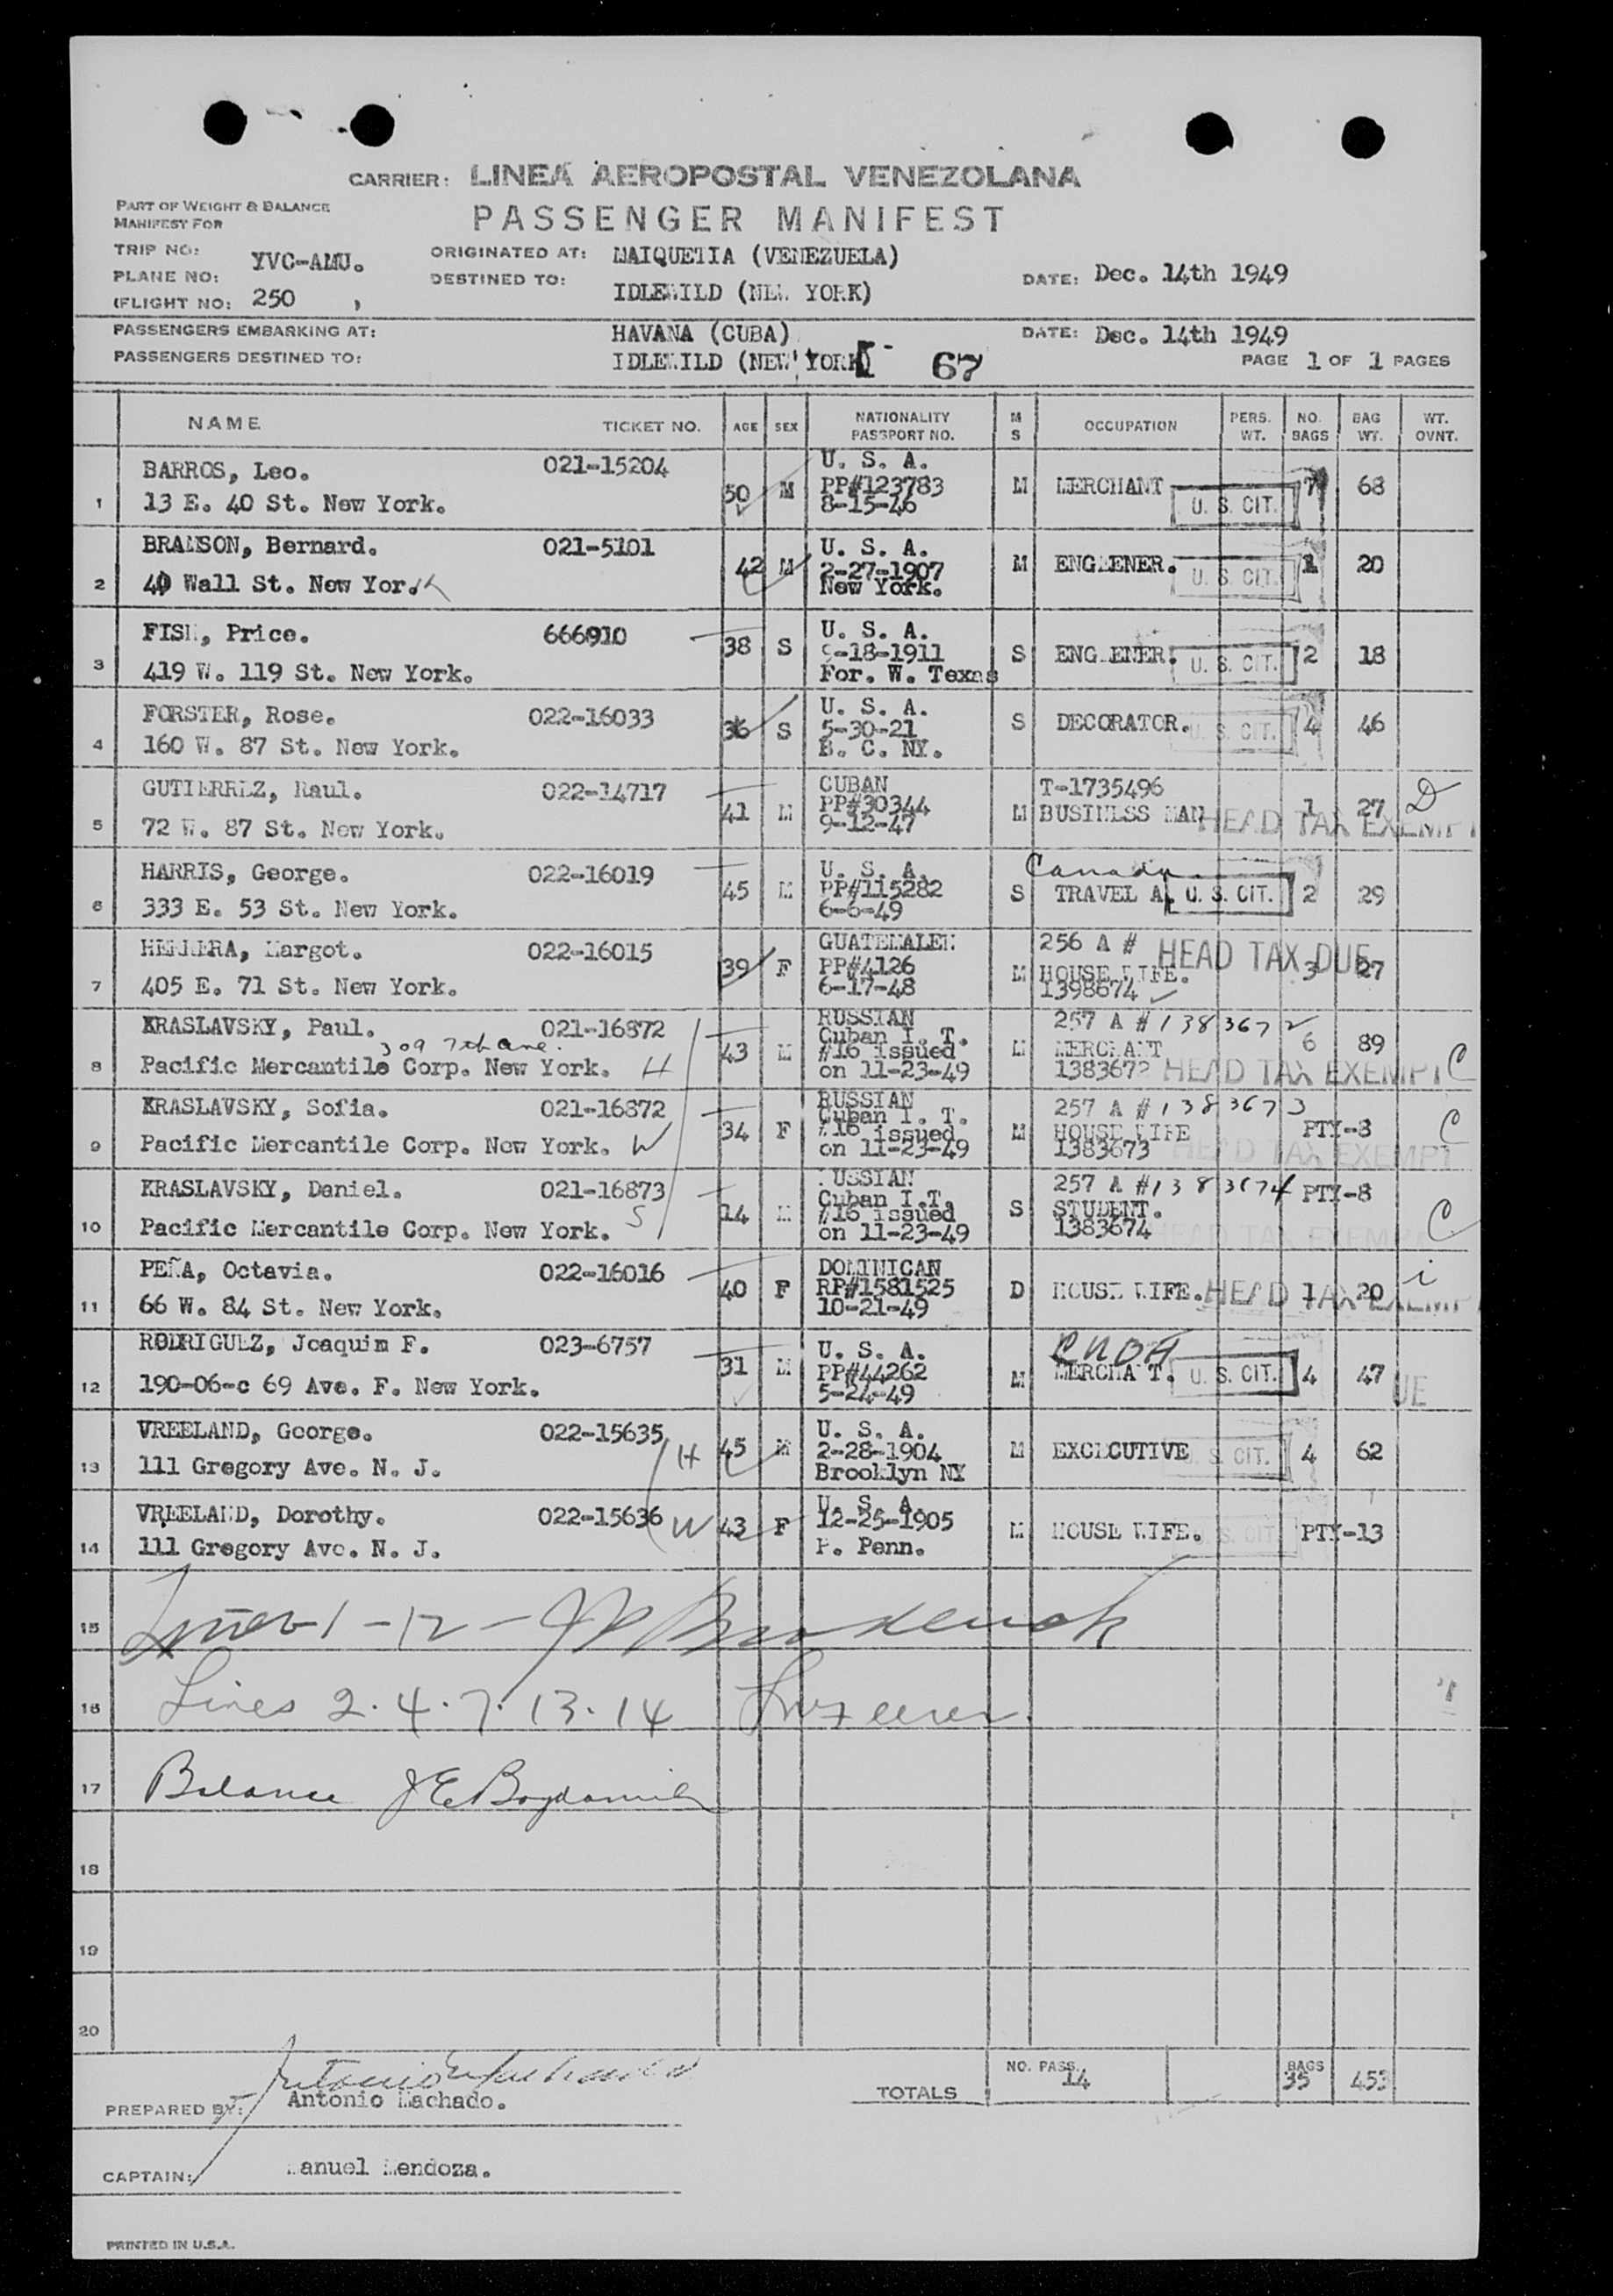 CARRIER: LINEA AEROPOSTAL VENEZOLANA
PART OF WEIGHT & BALANCE
MANIFEST FOR
PASSENGER MANIFEST
TRIP NO:
PLANE NO: YVC-AMU.
(FLIGHT NO: 250 ,
ORIGINATED AT: MAIQUETIA (VENEZUELA)
DESTINED TO: IDLEWILD (NEW YORK)
DATE: Dec. 14th 1949
PASSENGERS EMBARKING AT: HAVANA (CUBA) DATE: Dec. 14th 1949
PASSENGERS DESTINED TO: IDLEWILD (NEW YORK) 67 PAGE 1 OF 1 PAGES
NAME TICKET NO. AGE SEX NATIONALITY PASSPORT NO. M S OCCUPATION PERS. WT. NO. BAGS BAG WT. WT. OVNT.
BARROS, Leo. 021-15204 U. S. A.
1 13 E. 40 St. New York. 50 M PP#123783 M MERCHANT U. S. CIT. 7 68
8-15-46
BRAMSON, Bernard. 021-5101 U. S. A.
2 40 Wall St. New Yor.k 42 M 2-27-1907 M ENGENER. U. S. CIT. 1 20
New York.
FISH, Price. 666910 U. S. A.
3 419 W. 119 St. New York. 38 S 9-18-1911 S ENGENER. U. S. CIT. 2 18
For. W. Texas
FORSTER, Rose. 022-16033 U. S. A.
4 160 W. 87 St. New York. 36 S 5-30-21 S DECORATOR. U. S. CIT. 4 46
B. C. NY.
GUTIERREZ, Raul. 022-14717 CUBAN T-1735496
5 72 W. 87 St. New York. 41 M PP#30344 M BUSINESS MAN HEAD TAX EXEMPT 1 27 D
9-12-47
HARRIS, George. 022-16019 U. S. A. Canada
6 333 E. 53 St. New York. 45 M PP#115282 S TRAVEL A. U. S. CIT. 2 29
6-6-49
HERRERA, Margot. 022-16015 GUATEMALEN 256 A # HEAD TAX DUE
7 405 E. 71 St. New York. 39 F PP#4126 M HOUSE WIFE. 3 27
6-17-48 1398674
KRASLAVSKY, Paul. 021-16872 RUSSIAN 257 A #1383672
309 7th Ave.
8 Pacific Mercantile Corp. New York. H 43 M Cuban I. T. M MERCHANT 6 89
#16 issued
on 11-23-49 1383672 HEAD TAX EXEMPT C
KRASLAVSKY, Sofia. 021-16872 RUSSIAN 257 A #1383673
9 Pacific Mercantile Corp. New York. W 34 F Cuban I. T. M HOUSE WIFE PTY-8 C
#16 issued
on 11-23-49 1383673 HEAD TAX EXEMPT
KRASLAVSKY, Daniel. 021-16873 RUSSIAN 257 A #1383674 PTY-8
10 Pacific Mercantile Corp. New York. S 14 M Cuban I.T. S STUDENT. C
#16 issued
on 11-23-49 1383674 HEAD TAX EXEMPT
PEÑA, Octavia. 022-16016 DOMINICAN
11 66 W. 84 St. New York. 40 F RP#1581525 D HOUSE WIFE. HEAD TAX EXEMPT 1 20 i
10-21-49
RODRIGUEZ, Joaquim F. 023-6757 U. S. A.
12 190-06-c 69 Ave. F. New York. 31 M PP#44262 M MERCHANT. U. S. CIT. 4 47 UE
5-24-49
VREELAND, George. 022-15635 H U. S. A.
13 111 Gregory Ave. N. J. 45 M 2-28-1904 M EXCECUTIVE S. CIT. 4 62
Brooklyn NY
VREELAND, Dorothy. 022-15636 W U. S. A.
14 111 Gregory Ave. N. J. 43 F 12-25-1905 M HOUSE WIFE. S. CIT PTY-13
P. Penn.
15 1-12-
16 Lines 2. 4. 7. 13. 14
17 Balance
18
19
20
TOTALS NO. PASS. 14 BAGS 35 453
PREPARED BY: Antonio Machado.
CAPTAIN: Manuel Mendoza.
PRINTED IN U.S.A.